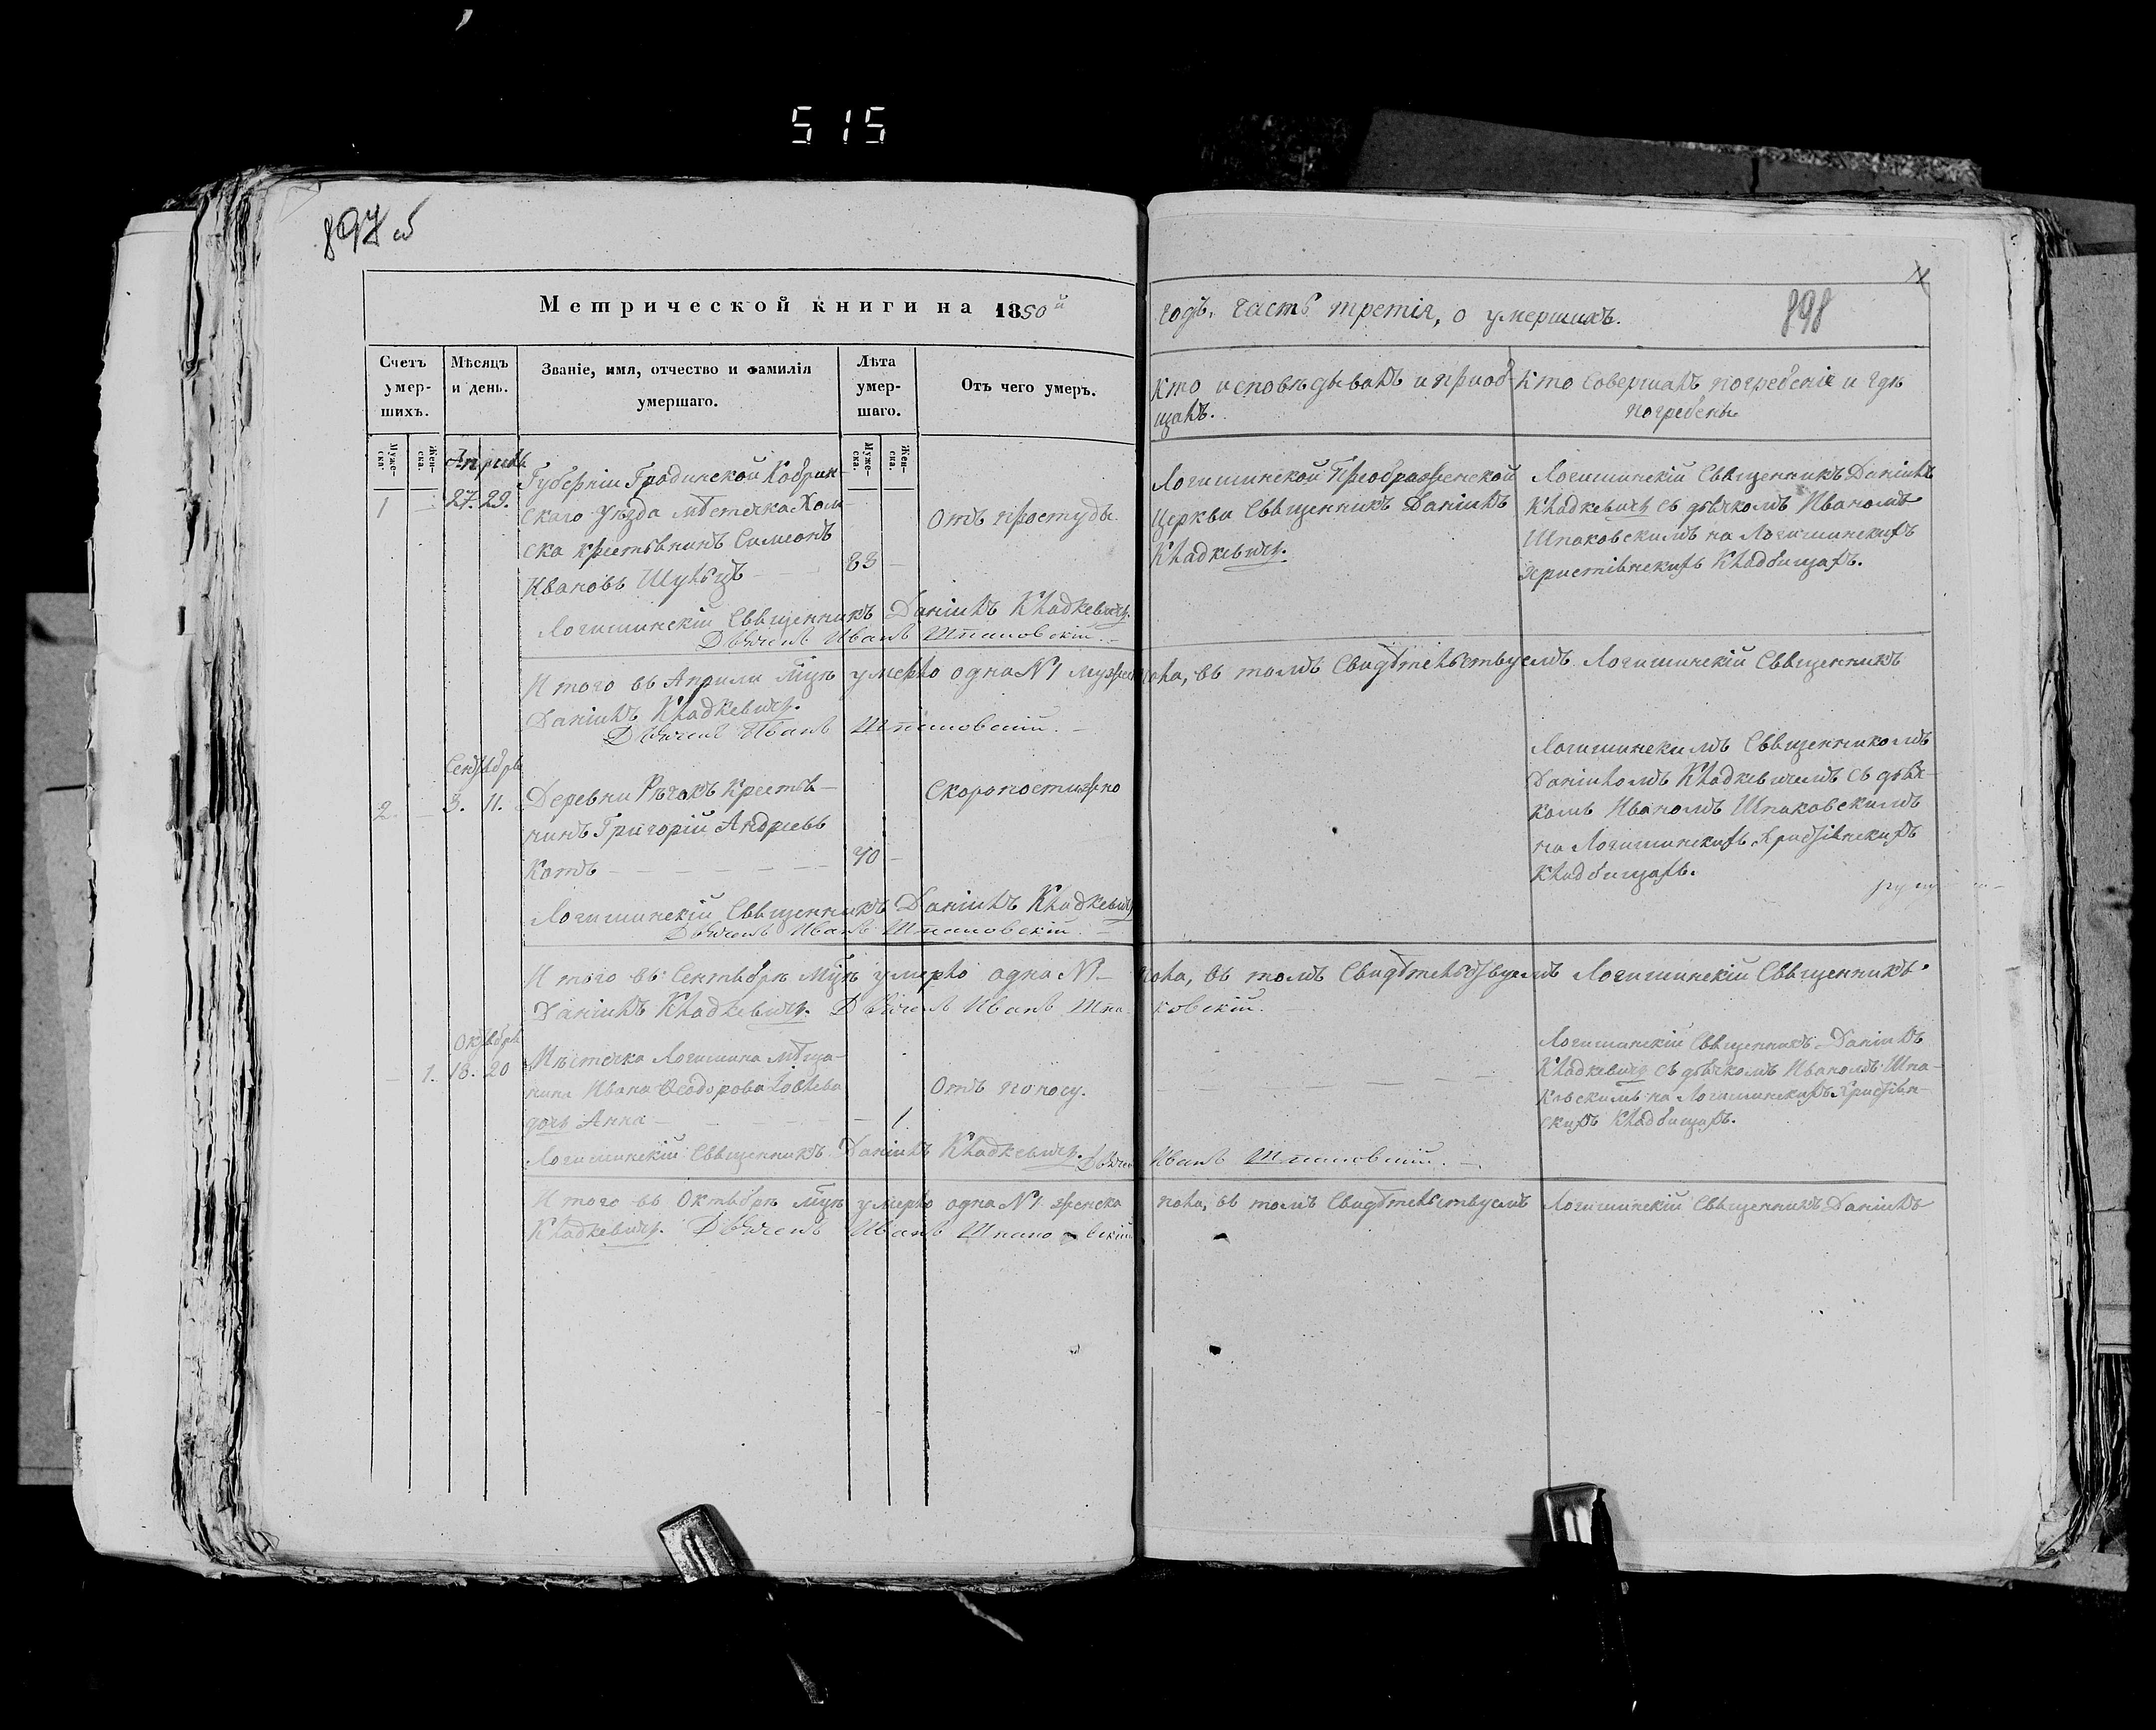 515
897 об
Метрической книги на 1850й годъ, часть третія, о умершихъ.
898
Счетъ умер-шихъ.
Мѣсяцъ и день.
Званіе, имя, отчество и фамилія умершаго.
Лѣта умер-шаго.
Отъ чего умеръ.
Кто исповѣдывалъ и пріоб-
щалъ.
Кто совершалъ погребеніе и гдѣ
погребены
Муже-ска.
Жен-ска.
Муже-ска.
Жен-ска.
Апрѣль
1
27. 29.
Губерніи Гродинской Кобрин-
скаго уѣзда мѣстечка Хом-
ска крестьянинъ Симеонъ
Ивановъ Шулѣцъ
83
Отъ простуды.
Логишинской Преображенской
Церкви Священникъ Даніилъ
Кладкевичъ.
Логишинскій Священникъ Даніилъ
Кладкевичъ съ дьячкомъ Иваномъ
Шпаковскимъ на Логишинскихъ
христіянскихъ кладбищахъ.
Логишинскій Священникъ Даніилъ Кладкевичъ.
Дьячекъ Иванъ Шпаковскій.
Итого въ Априли мцѣ умерло одна №1 мужеска пола, въ томъ свидѣтельствуемъ Логишинскій Священникъ
Даніилъ Кладкевичъ.
Дьячекъ Иванъ Шпаковскій.
Сентябрь
2. 3. 11.
Деревни Рѣчокъ крестья-
нинъ Григорій Андреевъ
Котъ
70
Скоропостижно
Логишинскимъ Священникомъ
Даніиломъ Кладкевичемъ съ дья-
комъ Иваномъ Шпаковскимъ
на Логишинскихъ христіянскихъ
кладбищахъ.
Логишинскій Священникъ Даніилъ Кладкевичъ
Дьячекъ Иванъ Шпаковскій.
Итого въ Сентябрѣ мцѣ умерло одна №1 пола, въ томъ свидѣтельствуемъ Логишинскій Священникъ
Даніилъ Кладкевичъ. Дьячекъ Иванъ Шпаковскій.
Октябрь
1. 18. 20
Мѣстечка Логишина мѣща-
нина Ивана Ѳеодорова
дочь Анна
1
Отъ поносу.
Логишинскій Священникъ Даніилъ
Кладкевичъ съ дьячкомъ Иваномъ Шпа-
ковскимъ на Логишинскихъ Христіян-
скихъ кладбищахъ.
Логишинскій Священникъ Даніилъ Кладкевичъ. Дьячекъ Иванъ Шпаковскій.
Итого въ Октябрѣ мцѣ умерло одна №1 женска пола, въ томъ свидѣтельствуемъ Логишинскій Священникъ Даніилъ
Кладкевичъ. Дьячекъ Иванъ Шпаковскій